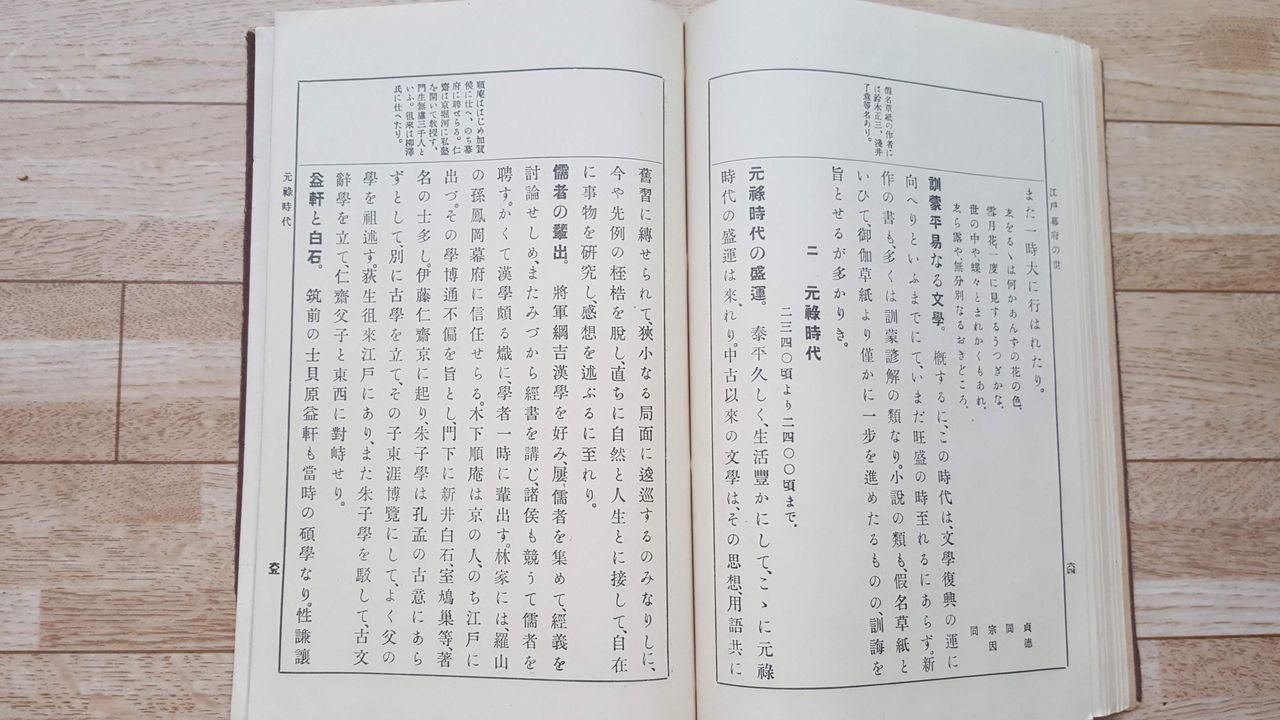 江戸幕府の世
また一時大に行はれたり。
ゑをるゝは何かあんずの花の色、
貞德
雪月花、一度に見するうつぎかな、
同
世の中や、蝶々とまれかくもあれ、
宗因
ゑら露や無分別なるおきどころ、
同
訓蒙平易なる文學。 概するに、この時代は、文學復興の運に
向へりといふまでにて、いまだ旺盛の時至れるにあらず。新
作の書も、多くは訓蒙諺解の類なり。小說の類も、假名草紙と
いひて、御伽草紙より僅かに一步を進めたるものの、訓誨を
旨とせるが多かりき。
假名草紙の作者に
は鈴木正三、淺井
了意等名あり。
二 元祿時代
二三四〇頃より二四〇〇頃まで、
元祿時代の盛運。 泰平久しく、生活豐かにして、こゝに元祿
時代の盛運は來、れり。中古以來の文學は、その思想、用語共に
六四
舊習に縛せられて、狹小なる局面に逡巡するのみなりしに、
今や先例の桎梏を脫し、直ちに自然と人生とに接して、自在
に事物を硏究し、感想を述ぶるに至れり。
儒者の輩出。 將軍綱吉漢學を好み、屢、儒者を集めて、經義を
討論せしめ、またみづから經書を講じ、諸侯も競うて儒者を
聘す。かくて漢學頗る熾に、學者一時に輩出す。林家には、羅山
の孫鳳岡幕府に信任せらる。木下順庵は京の人、のち江戸に
出づ。その學博通不偏を旨とし、門下に新井白石、室鳩巢等、著
名の士多し。伊藤仁齋京に起り、朱子學は孔孟の古意にあら
ずとして、別に古學を立て、その子東涯博覽にして、よく父の
學を祖述す。荻生徂來江戸にあり、また朱子學を駁して、古文
辭學を立て、仁齋父子と東西に對峙せり。
順庵ははじめ加賀
侯に仕へ、のち幕
府に聘せらる。仁
齋は京堀河に私塾
を開いて敎授す、
門生無慮三千人と
いふ。徂來は柳澤
氏に仕へたり。
益軒と白石。 筑前の士貝原益軒も當時の碩學なり。性謙讓
元祿時代
六五